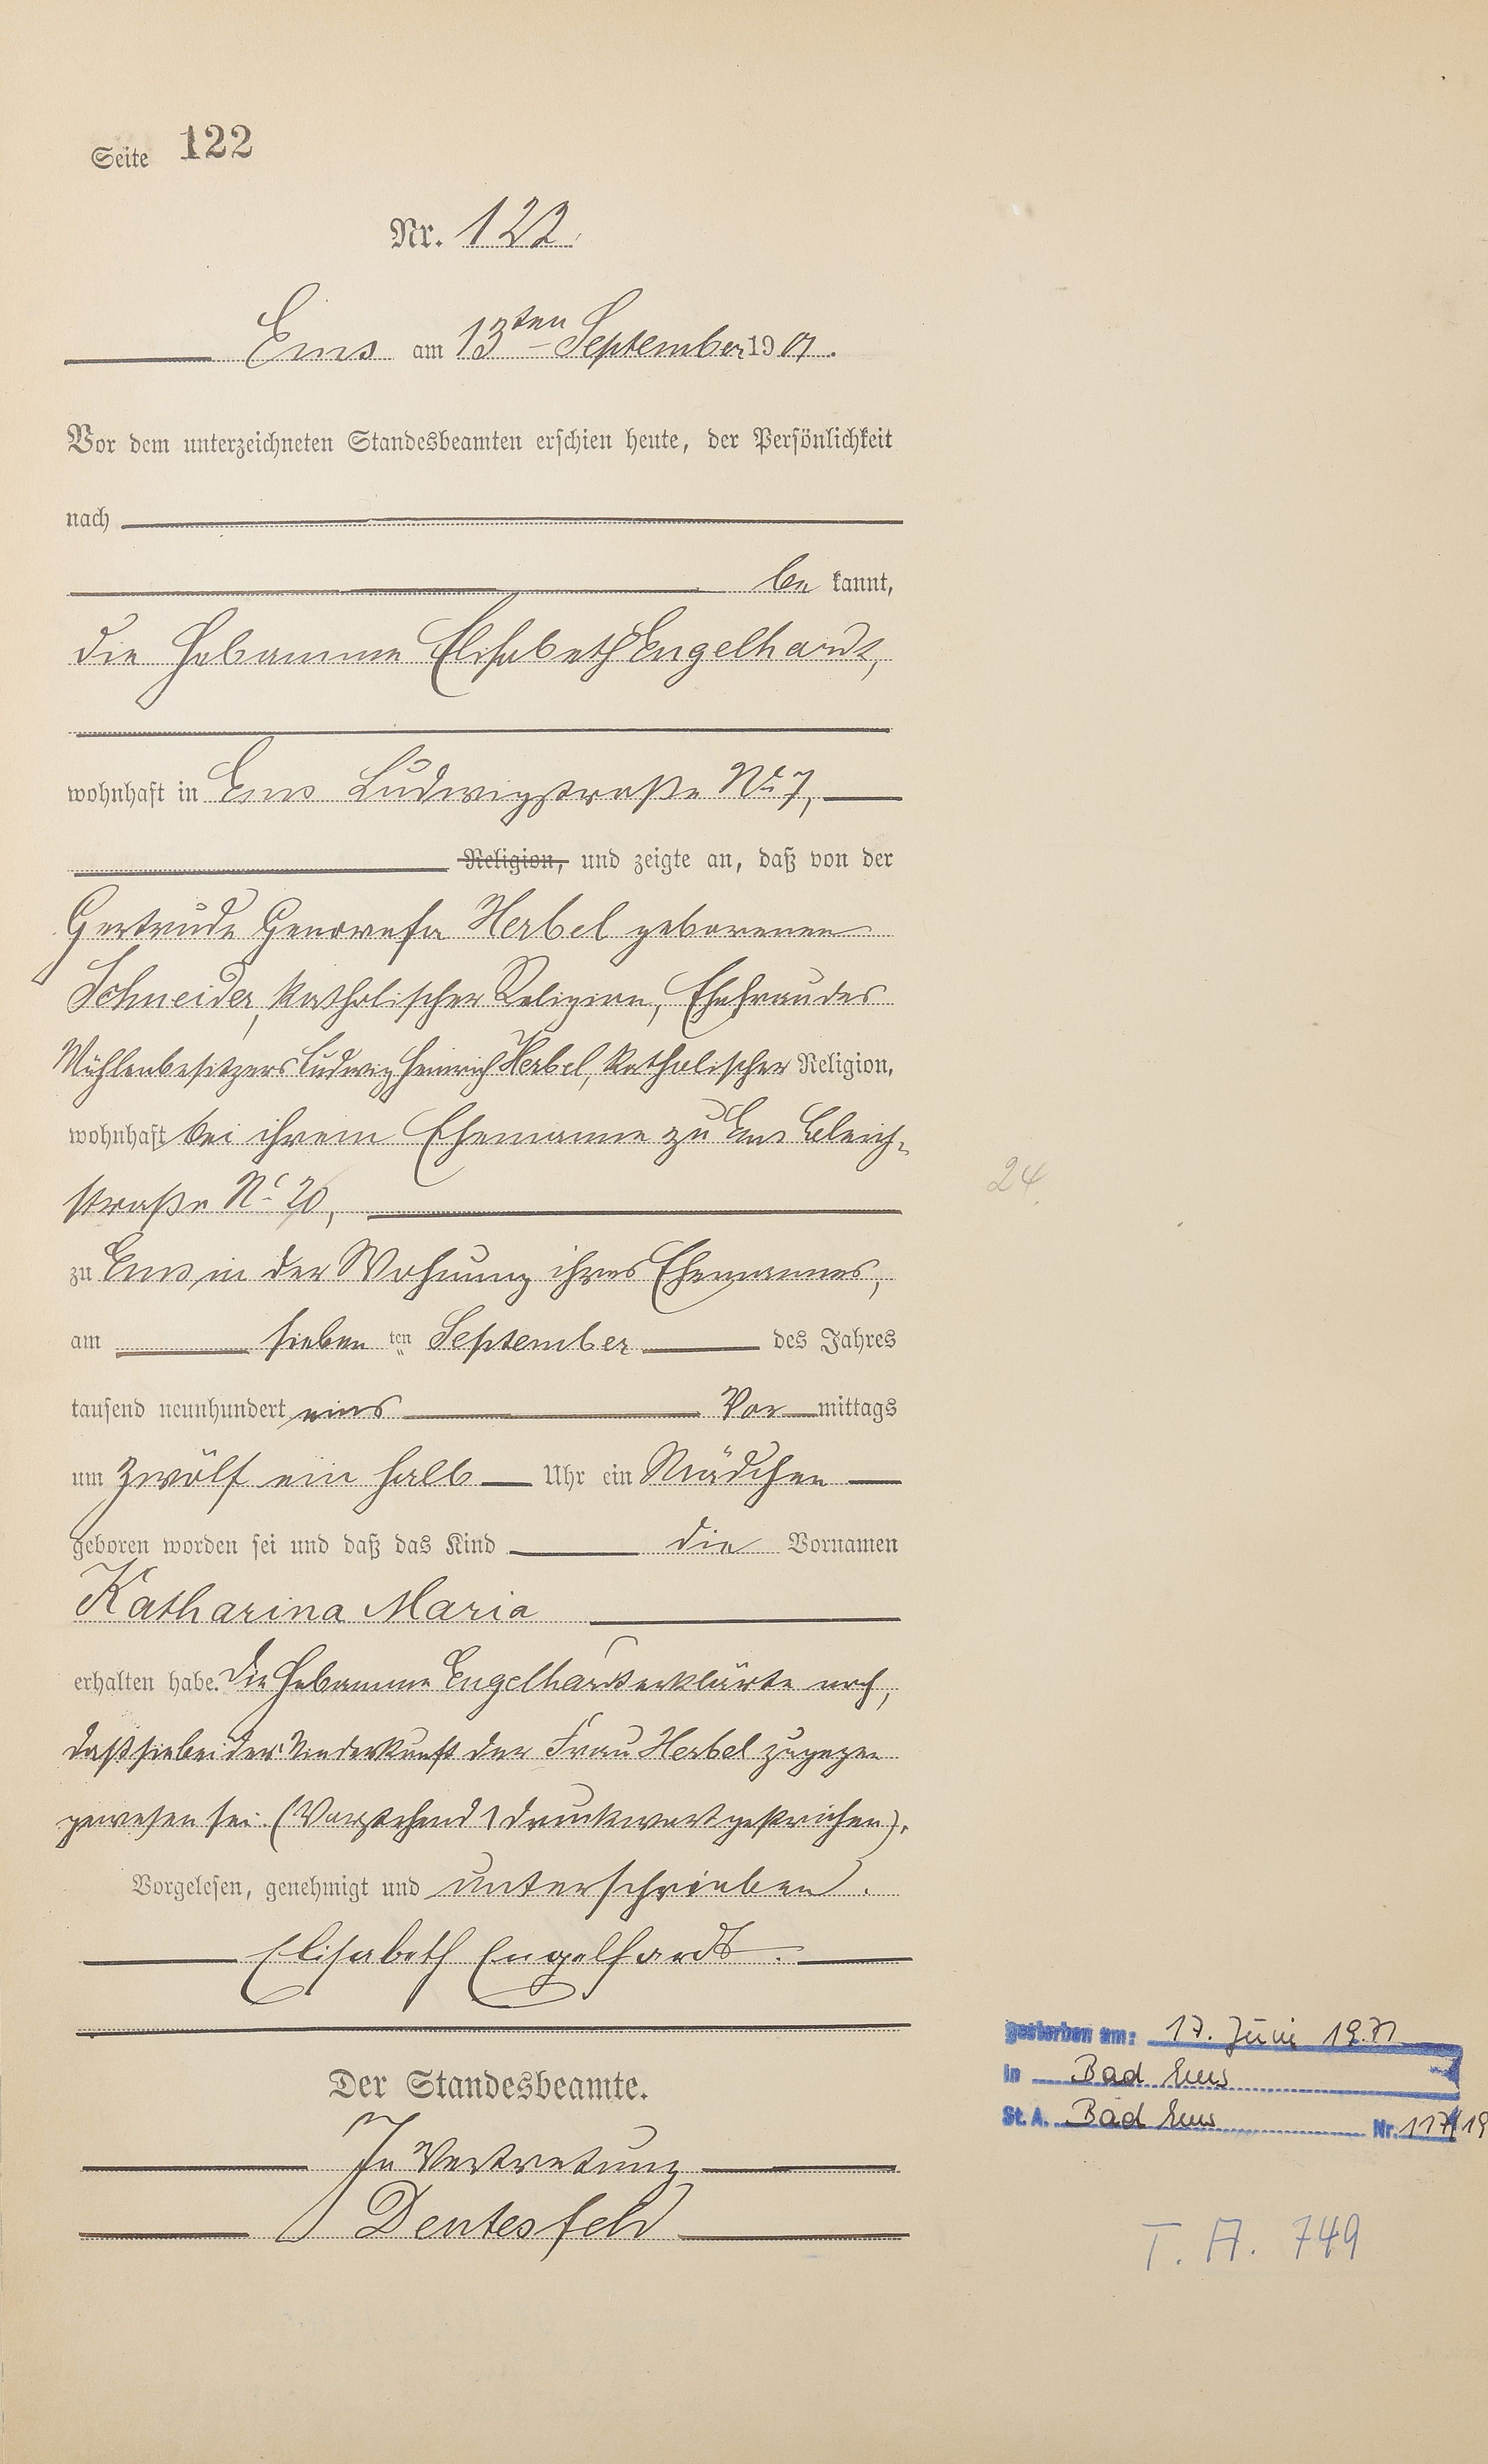 Seite 122
Nr. 122
Ems am 13ten September 1901.
Vor dem unterzeichneten Standesbeamten erschien heute, der Persönlichkeit
nach
be kannt,
die Hebamme Elisabeth Engelhardt,
wohnhaft in Ems Ludwigstraße No 7,
Religion, und zeigte an, daß von der
Gertrude Genovefa Herbel geborenen
Schneider, katholischer Religion, Ehefrau des
Mühlenbesitzers Ludwig Heinrich Herbel, katholischer Religion,
wohnhaft bei ihrem Ehemanne zu Ems Bleich-
straße No 20,
zu Ems in der Wohnung ihres Ehemannes,
am sieben ten September des Jahres
tausend neunhundert eins Vor mittags
um zwölf ein halb Uhr ein Mädchen
geboren worden sei und daß das Kind die Vornamen
Katharina Maria
erhalten habe. Die Hebamme Engelhardt erklärte noch,
daß sie bei der Niederkunft der Frau Herbel zugegen
gewesen sei. (Vorstehend 1 Druckwort gestrichen).
Vorgelesen, genehmigt und unterschrieben.
Elisabeth Engelhardt.
Der Standesbeamte.
In Vertretung
Dentesfeld
24
gestorben am: 17. Juni 1971
in Bad Ems
St. A. Bad Ems Nr. 117/19
T. A. 749